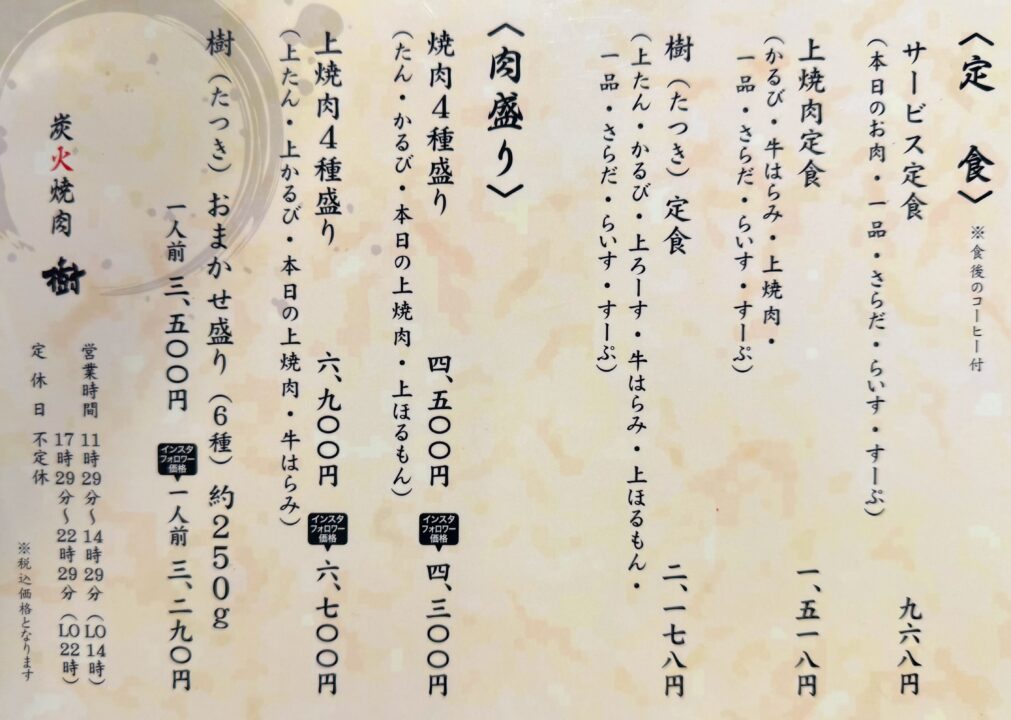 〈定 食〉 ※食後のコーヒー付
サービス定食 九六八円
(本日のお肉・一品・さらだ・らいす・すーぷ)
上焼肉定食 一、五一八円
(かるび・牛はらみ・上焼肉・
一品・さらだ・らいす・すーぷ)
樹(たつき)定食 二、一七八円
(上たん・かるび・上ろーす・牛はらみ・上ほるもん・
一品・さらだ・らいす・すーぷ)
〈肉盛り〉
焼肉4種盛り 四、五〇〇円 インスタフォロワー価格 四、三〇〇円
(たん・かるび・本日の上焼肉・上ほるもん)
上焼肉4種盛り 六、九〇〇円 インスタフォロワー価格 六、七〇〇円
(上たん・上かるび・本日の上焼肉・牛はらみ)
樹(たつき)おまかせ盛り(6種)約250g
一人前 三、五〇〇円 インスタフォロワー価格 一人前 三、二九〇円
炭火焼肉 樹
営業時間 11時29分〜14時29分(LO14時)
17時29分〜22時29分(LO22時)
定休日 不定休
※税込価格となります